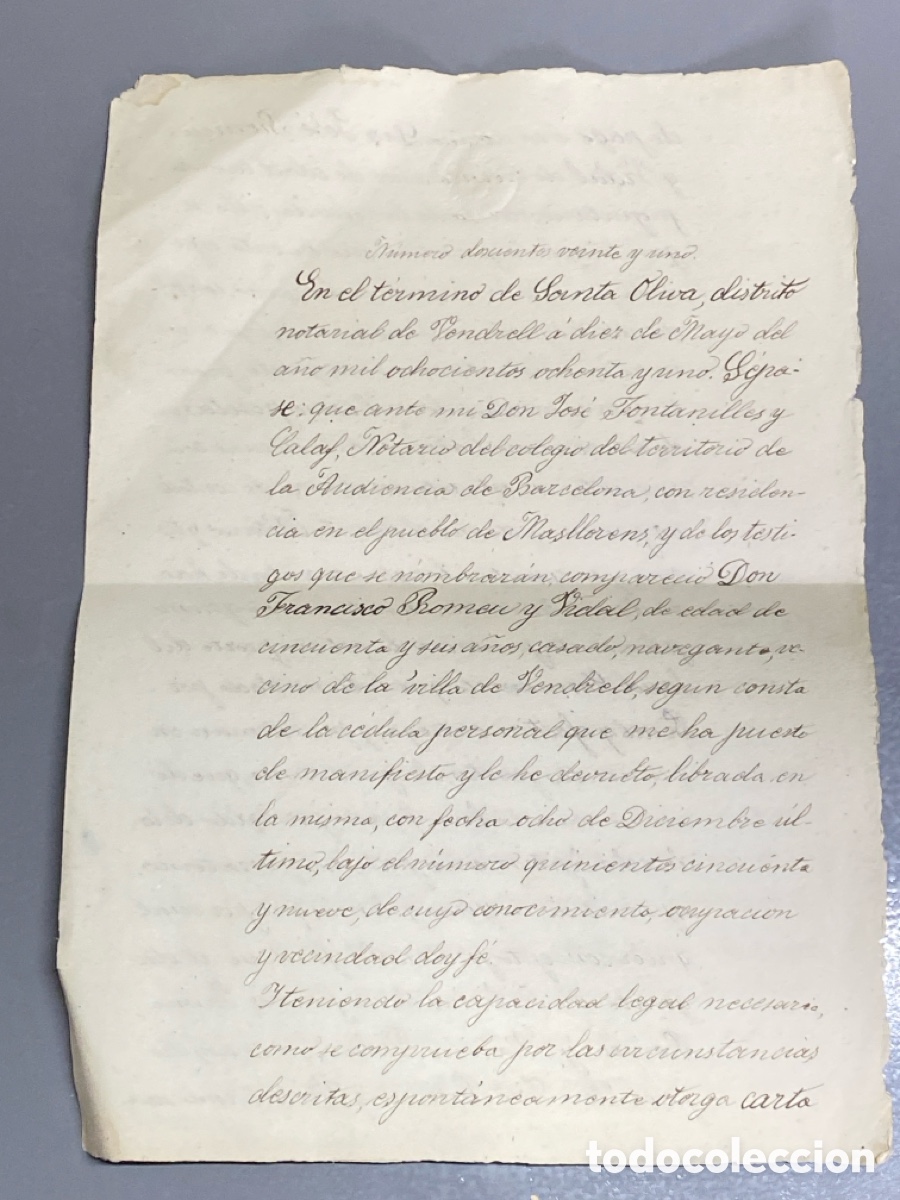 Número doscientos veinte y uno.
En el término de Santa Oliva, distrito
notarial de Vendrell á diez de Mayo del
año mil ochocientos ochenta y uno. Sépa-
se: que ante mi Don José Fontanilles y
Calaf, Notario del colegio del territorio de
la Audiencia de Barcelona, con residen-
cia en el pueblo de Masllorens, y de los testi-
gos que se nombrarán, compareció Don
Francisco Romeu y Vidal, de edad de
cincuenta y seis años, casado, navegante, ve-
cino de la villa de Vendrell, segun consta
de la cédula personal que me ha puesto
de manifiesto y le he devuelto, librada en
la misma, con fecha ocho de Diciembre úl-
timo, bajo el número quinientos cincuenta
y nueve, de cuyo conocimiento, ocupacion
y vecindad doy fé.
Y teniendo la capacidad legal necesaria,
como se comprueba por las circunstancias
descritas, espontáneamente otorga carta
todocoleccion